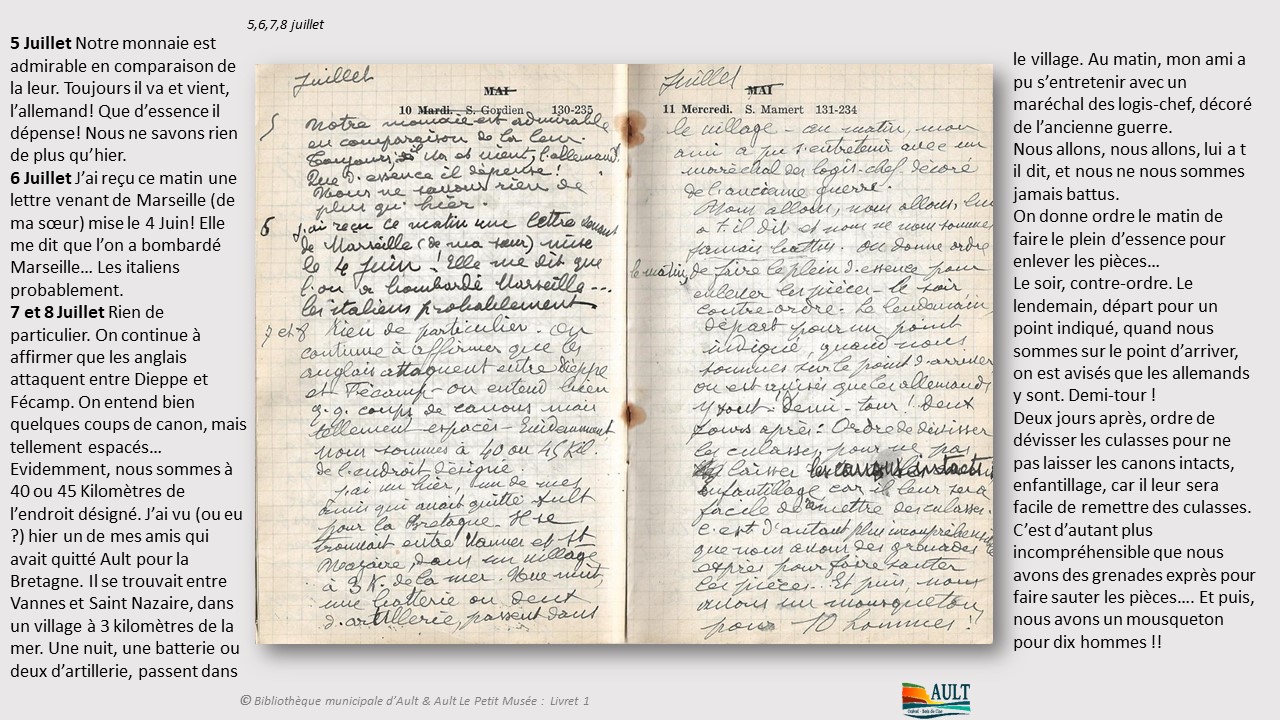 5,6,7,8 juillet
5 Juillet Notre monnaie est
admirable en comparaison de
la leur. Toujours il va et vient,
l’allemand! Que d’essence il
dépense! Nous ne savons rien
de plus qu’hier.
6 Juillet J’ai reçu ce matin une
lettre venant de Marseille (de
ma sœur) mise le 4 Juin! Elle
me dit que l’on a bombardé
Marseille… Les italiens
probablement.
7 et 8 Juillet Rien de
particulier. On continue à
affirmer que les anglais
attaquent entre Dieppe et
Fécamp. On entend bien
quelques coups de canon, mais
tellement espacés…
Evidemment, nous sommes à
40 ou 45 Kilomètres de
l’endroit désigné. J’ai vu (ou eu
?) hier un de mes amis qui
avait quitté Ault pour la
Bretagne. Il se trouvait entre
Vannes et Saint Nazaire, dans
un village à 3 kilomètres de la
mer. Une nuit, une batterie ou
deux d’artillerie, passent dans
Juillet
MAI
10 Mardi. S. Gordien 130-235
5 Notre monnaie est admirable
en comparaison de la leur.
Toujours il va et vient, l'allemand!
Que d'essence il dépense!
Nous ne savons rien de
plus qu'hier.
6 J'ai reçu ce matin une lettre venant
de Marseille (de ma sœur) mise
le 4 Juin! Elle me dit que
l'on a bombardé Marseille...
les italiens probablement
7 et 8 Rien de particulier. On
continue à affirmer que les
anglais attaquent entre Dieppe
et Fécamp - on entend bien
q.q. coups de canons mais
tellement espacés - Evidemment
nous sommes à 40 ou 45 Kil.
de l'endroit désigné.
j'ai vu hier un de mes
amis qui avait quitté Ault
pour la Bretagne. Il se
trouvait entre Vannes et St
Nazaire, dans un village
à 3 K. de la mer. Une nuit,
une batterie ou deux
d'artillerie, passent dans
Juillet
MAI
11 Mercredi. S. Mamert 131-234
le village - au matin, mon
ami a pu s'entretenir avec un
maréchal des logis-chef, décoré
de l'ancienne guerre.
Nous allons, nous allons, lui
a t il dit et nous ne nous sommes
jamais battus. On donne ordre
le matin de faire le plein d'essence pour
enlever les pièces - le soir
contre-ordre. Le lendemain,
départ pour un point
indiqué, quand nous
sommes sur le point d'arriver
on est avisés que les allemands
y sont - Demi-tour! Deux
jours après: Ordre de dévisser
les culasses, pour ne pas
laisser les canons intacts,
enfantillage car il leur sera
facile de remettre des culasses.
C'est d'autant plus incompréhensible
que nous avons des grenades
exprès pour faire sauter
les pièces... Et puis, nous
avons un mousqueton,
pour 10 hommes!!
le village. Au matin, mon ami a
pu s’entretenir avec un
maréchal des logis-chef, décoré
de l’ancienne guerre.
Nous allons, nous allons, lui a t
il dit, et nous ne nous sommes
jamais battus.
On donne ordre le matin de
faire le plein d’essence pour
enlever les pièces…
Le soir, contre-ordre. Le
lendemain, départ pour un
point indiqué, quand nous
sommes sur le point d’arriver,
on est avisés que les allemands
y sont. Demi-tour !
Deux jours après, ordre de
dévisser les culasses pour ne
pas laisser les canons intacts,
enfantillage, car il leur sera
facile de remettre des culasses.
C’est d’autant plus
incompréhensible que nous
avons des grenades exprès pour
faire sauter les pièces…. Et puis,
nous avons un mousqueton
pour dix hommes !!
© Bibliothèque municipale d’Ault & Ault Le Petit Musée : Livret 1
AULT